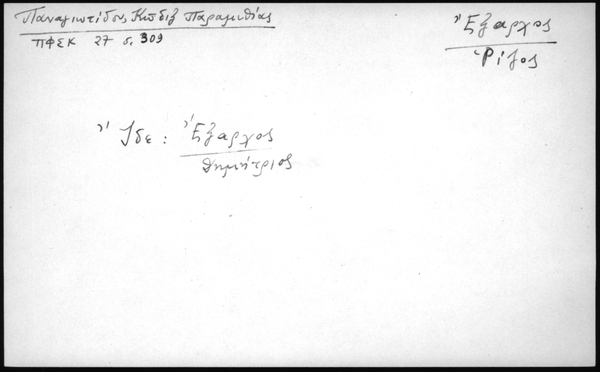 Παναγιωτίδου, Κώδιξ Παραμυθίας
ΠΦΣΚ 27 σ. 309
Ἔξαρχος
Ρίζος
Ἴδε: Ἔξαρχος
Δημήτριος